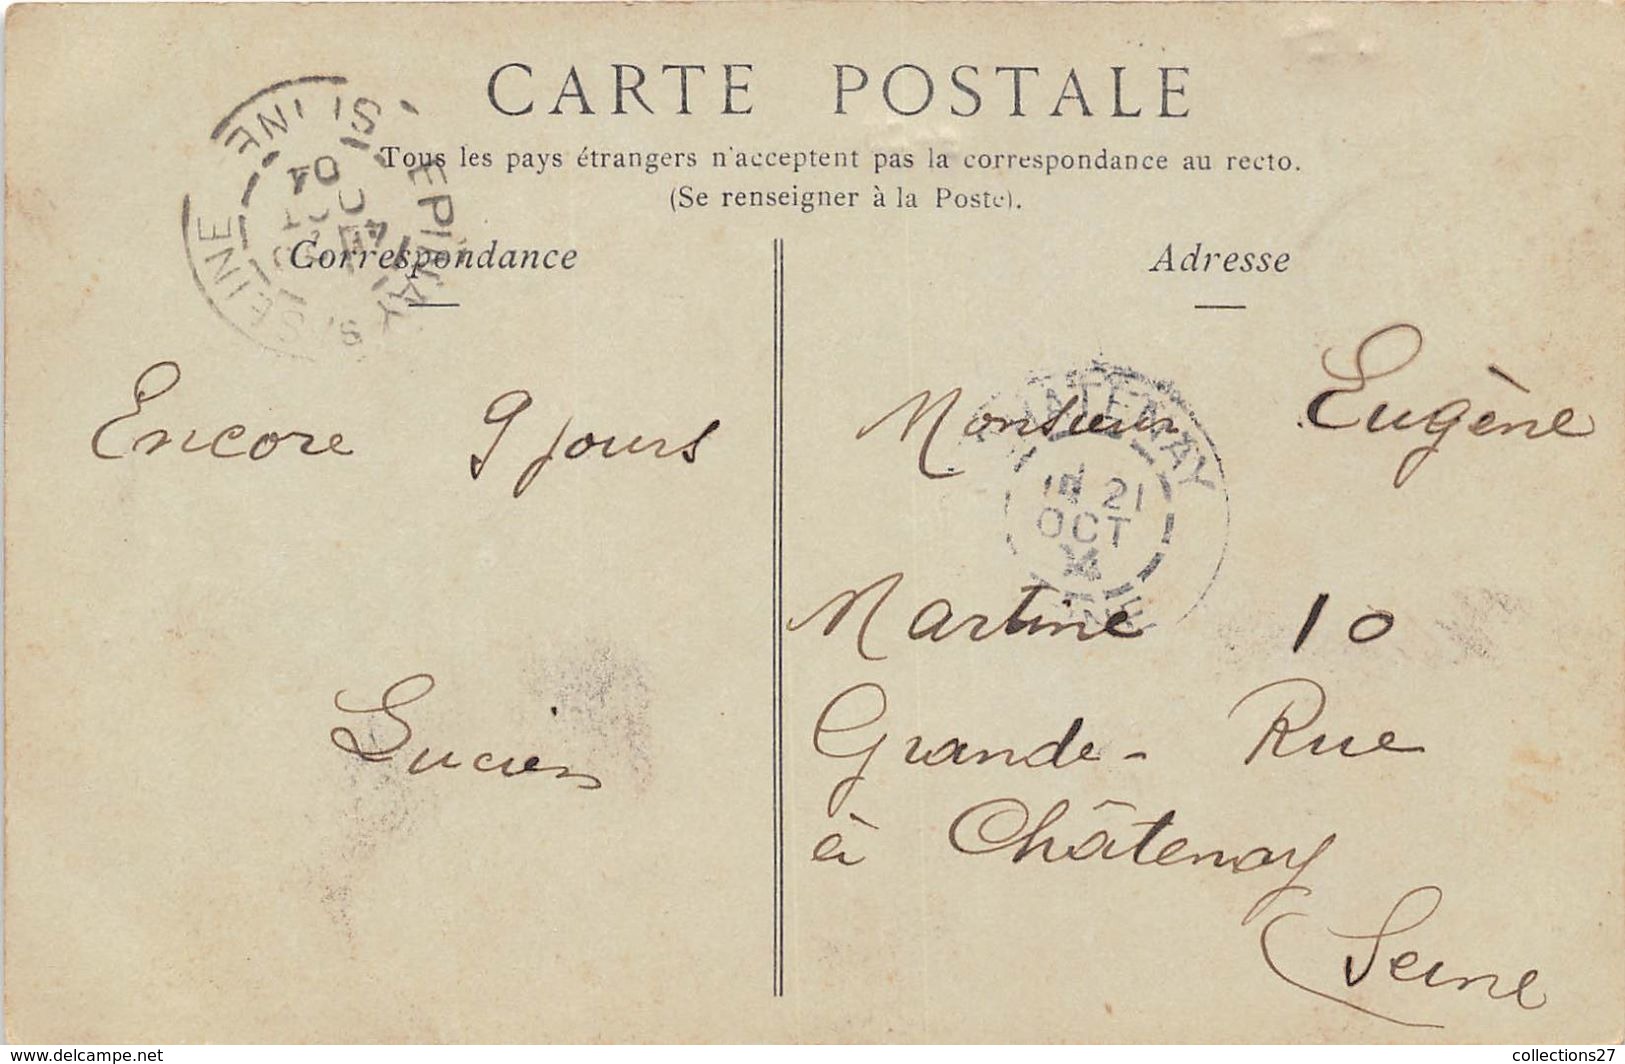 CARTE POSTALE
Tous les pays étrangers n'acceptent pas la correspondance au recto.
(Se renseigner à la Poste).
Correspondance
Adresse
EPINAY S. SEINE
SEINE
4E
OCT
04
Encore 9 jours
Lucien
Monsieur Eugène
Martine 10
Grande-Rue
à Châtenay
(Seine
21
OCT
www.delcampe.net
collections27